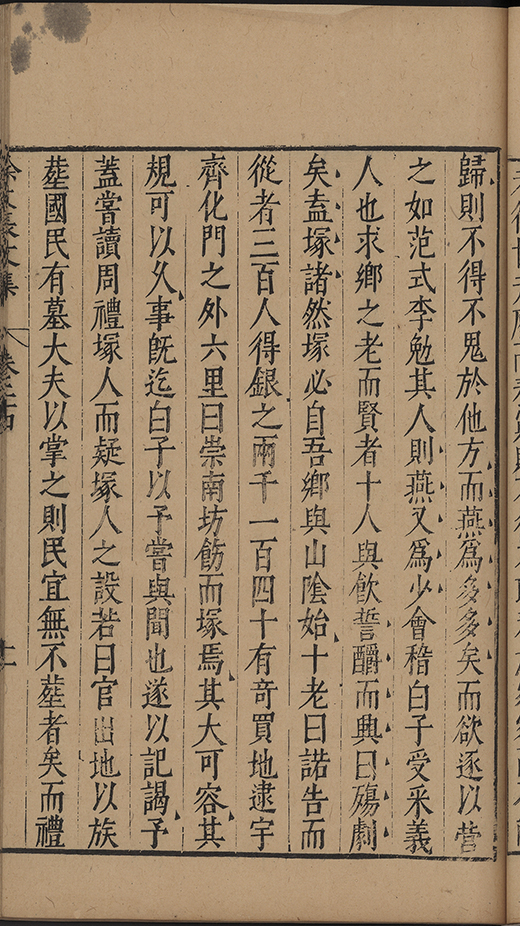 歸則不得不鬼於他方而燕為多多矣而欲逐以营
之如范式李勉其人則燕又為少會稽白子受采義
人也求鄉之老而賢者十人與飲誓酹而興曰殤劇
矣盍塚諸然塚必自吾鄉與山隂始十老曰諾告而
從者三百人得銀之兩千一百四十有奇買地逮宇
齊化門之外六里曰崇南坊飭而塚焉其大可容其
規可以久事既迄白子以予嘗與聞也遂以記謁予
蓋嘗讀周禮塚人而疑塚人之設若曰官出地以族
塟國民有墓大夫以掌之則民宜無不塟者矣而禮
徐文長文集
卷之二十四
十二